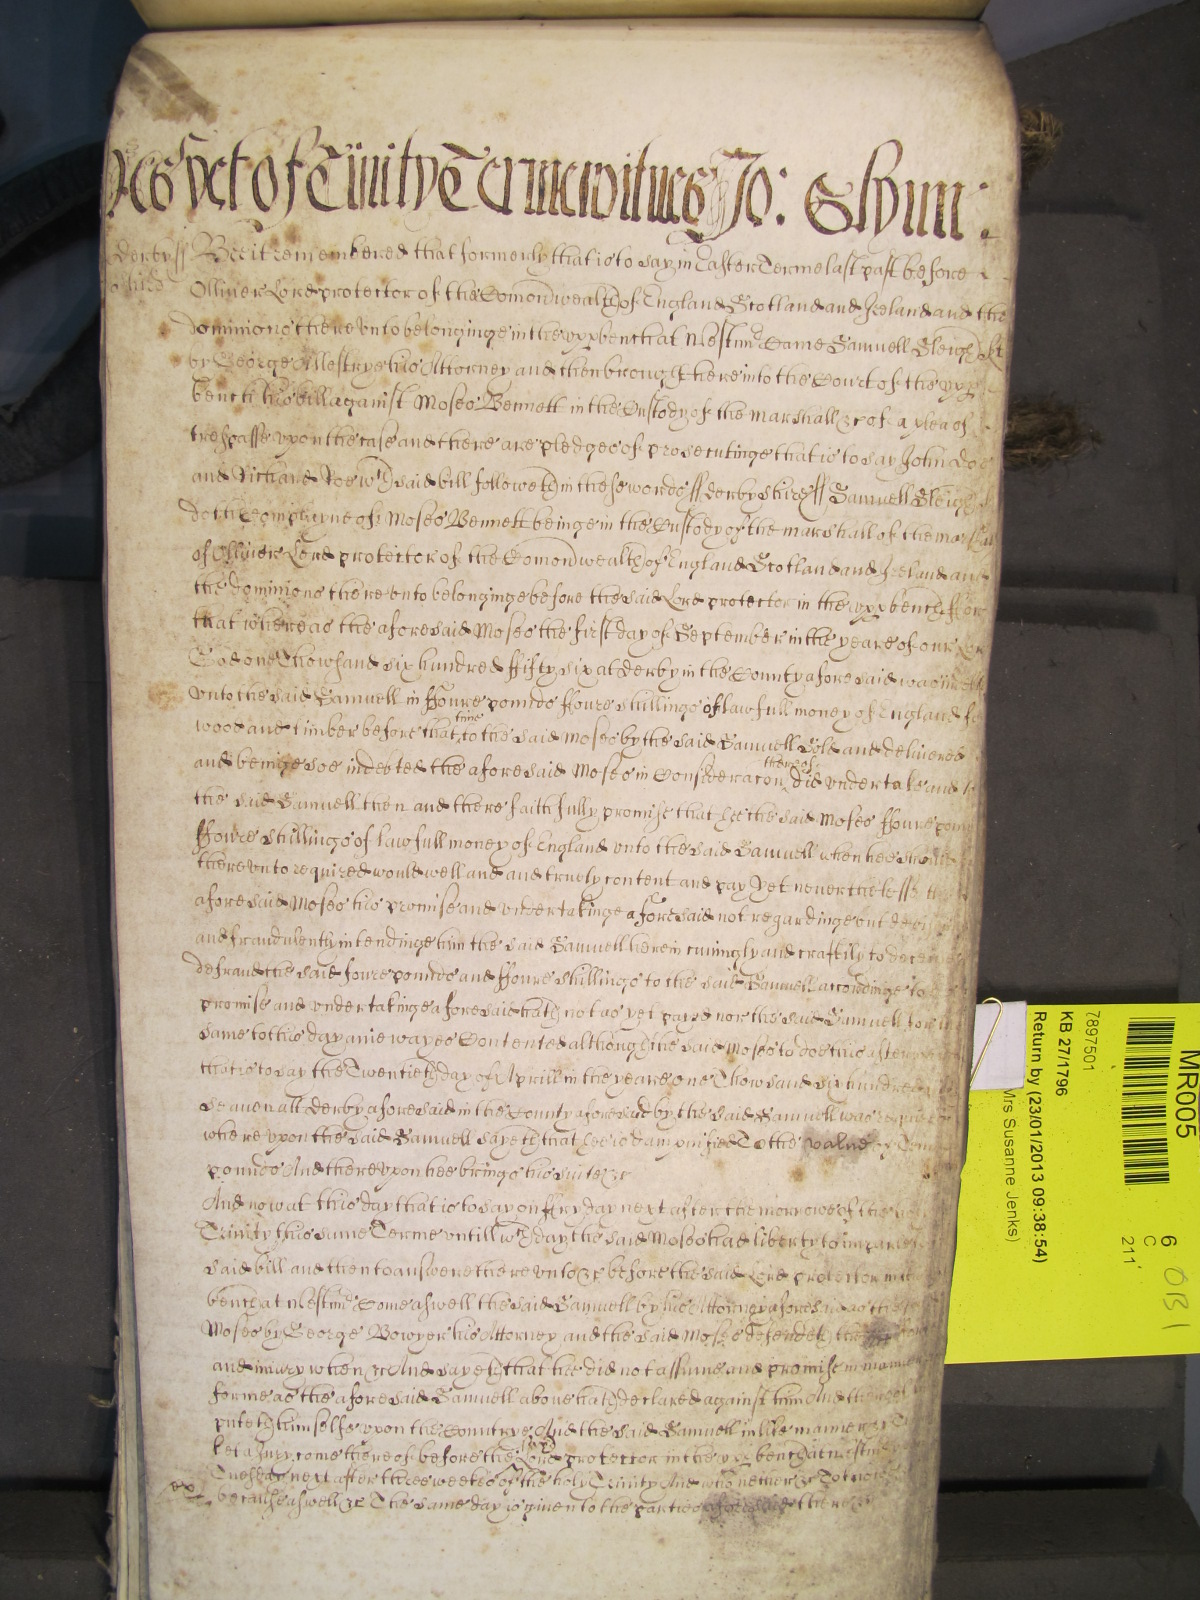 As yet of Trinity Terme witnes Jo: Glynn:
Derby ss Bee it remembered that formerly that is to say in Easter Terme last past before
Olliver Lord protector of the Comonwealth of England Scotland and Ireland and the
dominions there unto belonginge in the upp bench at Westmr Came Samuell Sleigh
by George Allestrye his Attorney and then brought here into the Court of the upp
bench his bill against Moses Bennett in the Custody of the marshall &c of a plea of
trespasse upon the case and there are pledges of prosecutinge that is to say John Doe
and Richard Roe wch said bill followeth in these words ss Derbyshire ss Samuell Sleigh
doth Complayne of Moses Bennett beinge in the Custody of the marshall of the
of Olliver Lord protector of the Comonwealth of England Scotland and Ireland and
the dominions there unto belonginge before the said Lord protector in the upp bench ffor
that whereas the aforesaid Moses the first day of September in the yeare of our Lord
God one Thowsand six hundred ffifty six at derby in the County aforesaid was
unto the said Samuell in ffoure pounds ffoure shillings of lawfull money of England
wood and timber before that time to the said Moses by the said Samuell Sold and delivered
and beinge soe indebted the aforesaid Moses in Consideracon thereof did undertake and
the said Samuell then and there faithfully promise that hee the said Moses ffoure
ffoure shillings of lawfull money of England unto the said Samuell when hee should
there unto required would well and and truely content and pay Yet neverthelesse
aforesaid Moses his promise and undertakinge aforesaid not regardinge but
and fraudulently intendinge him the said Samuell herein cuningly and craftily to
defraud the said foure pounds and ffoure shillings to the said Samuell accordinge to
promise and undertakinge aforesaid hath not as yet payed nor the said Samuell for
same to this day anie wayes Contented although the said Moses to doe this afterwards
that is to say the Twentieth day of Aprill in the yeare one Thowsand six hundred
seaven att Derby aforesaid in the County aforesaid by the said Samuell was
where upon the said Samuell sayeth that hee is dampnified To the value of
pounds And thereupon hee brings his suite &c
And now at this day that is to say on ffryday next after the morrowe of the
Trinity this same Terme untill wch day the said Moses had liberty to imparle
said bill and then to answere there unto &c before the said Lord protector
bench at Westmr Come aswell the said Samuell by his Attorney aforesaid as the
Moses by George Bowyer his Attorney and the said Moses defendeth the
and iniury when &c And sayeth that hee did not assume and promise in
forme as the aforesaid Samuell above hath declared against him And
puteth himselfe upon the Countrye And the said Samuell in like manner &c
let a Jury come thereof before the Lord protector in the upp bench at
Tuesday next after three weekes of the holy Trinity And who neither &c To
because aswell &c The same day is given to the parties aforesaid there &c
MR005
6
C
211
7897501
KB 27/1796
Return by (23/01/2013 09:38:54)
Mrs Susanne Jenks)